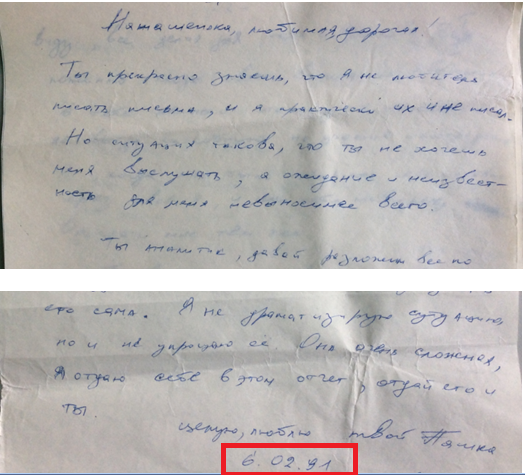 Наташенька, любимая, дорогая!
Ты прекрасно знаешь, что я не любитель
писать письма, и я практически их и не писал.
Но ситуация такова, что ты не хочешь
меня выслушать, а ожидание и неизвест-
ность для меня невыносимее всего.
Ты аналитик, давай разложим все по
его сама. Я не драматизирую ситуацию,
но и не упрощаю ее. Она очень сложная,
Я отдаю себе в этом отчет, отдай его и
ты.
целую, люблю твой Пашка
6.02.91